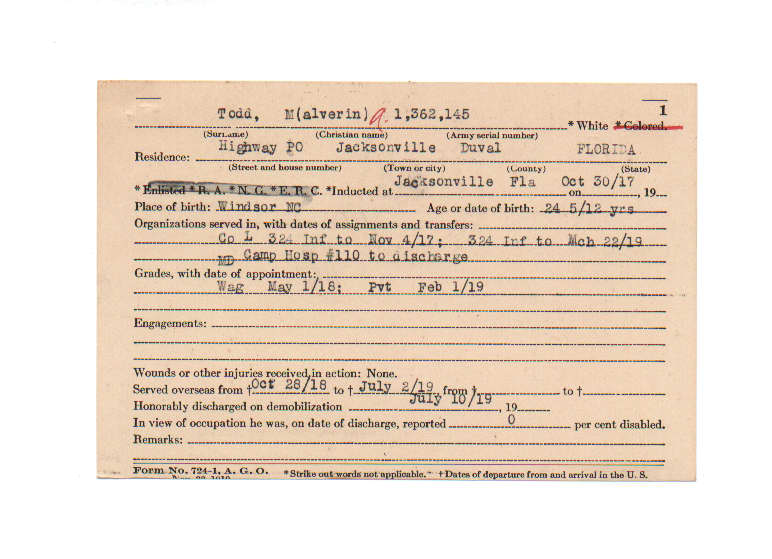 1
Todd, M(alverin) a. 1,362,145
* White * Colored.
(Surname) (Christian name) (Army serial number)
Highway PO Jacksonville Duval FLORIDA
Residence:
(Street and house number) (Town or city) (County) (State)
Jacksonville Fla Oct 30/17
* Enlisted * R. A. * N. G. * E. R. C. *Inducted at on , 19
Place of birth: Windsor NC Age or date of birth: 24 5/12 yrs
Organizations served in, with dates of assignments and transfers:
Co L 324 Inf to Nov 4/17; 324 Inf to Mch 22/19
MD Camp Hosp #110 to discharge
Grades, with date of appointment:
Wag May 1/18; Pvt Feb 1/19
Engagements:
Wounds or other injuries received in action: None.
Served overseas from † Oct 28/18 to † July 2/19 from † to †
July 10/19
Honorably discharged on demobilization , 19
In view of occupation he was, on date of discharge, reported 0 per cent disabled.
Remarks:
Form No. 724-1, A. G. O. *Strike out words not applicable. † Dates of departure from and arrival in the U. S.